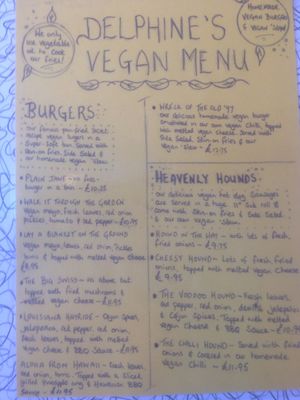 We only
use vegetable
oil to cook
our fries!
DELPHINE'S
VEGAN MENU
HOMEMADE
VEGAN BURGERS
& VEGAN 'Slaw
BURGERS
our famous pan-fried secret
recipe Vegan burger in a
Super-soft bun. Served with
Skin-on fries, Side Salad &
our homemade vegan 'Slaw.
• PLAIN JANE - no fuss -
burger in a bun - £10.25
• WALK IT THROUGH THE GARDEN
Vegan mayo, fresh leaves, red onion
pickles, tomato & red pepper - £10.75
• LAY A BLANKET ON THE GROUND
Vegan mayo, leaves, red onion, Pickles
toms & topped with melted vegan cheese
• THE BIG SWISS - as above but
topped with fried mushrooms &
melted vegan cheese - £11.95
• LOUISIANA HAYRIDE - Cajun Spices,
jalapeños, red pepper, red onion,
fresh leaves, topped with melted
Vegan Cheese & BBQ Sauce
ALOHA FROM HAWAII - fresh leaves,
red onion, toms. Topped with a Sliced,
grilled Pineapple ring & Hawaiian BBQ
Sauce - £11.95
• WRECK OF THE OLD '97
our delicious homemade vegan burger
smothered in our own vegan Chilli, topped
with melted vegan cheese. Served with
Side Salad, Skin-on fries & our
Vegan 'Slaw - £13.75
HEAVENLY HOUNDS.
our delicious vegan hot dog Sausages
are Served in a huge 11" Sub roll &
come with Skin-on fries & Side Salad
& our own vegan 'Slaw.
• HOUND IN THE HAY - with lots of fresh
fried onions - £9.25
• CHEESY HOUND - Lots of fresh fried
onions, topped with melted vegan
Cheese - £9.75
• THE VOODOO HOUND - Fresh leaves,
red pepper, red onion, jalapeños
& Cajun Spices. Topped with melted
vegan Cheese & BBQ Sauce
• THE CHILLI HOUND - Served with fried
onions & Covered in our homemade
Vegan Chilli - £11.95